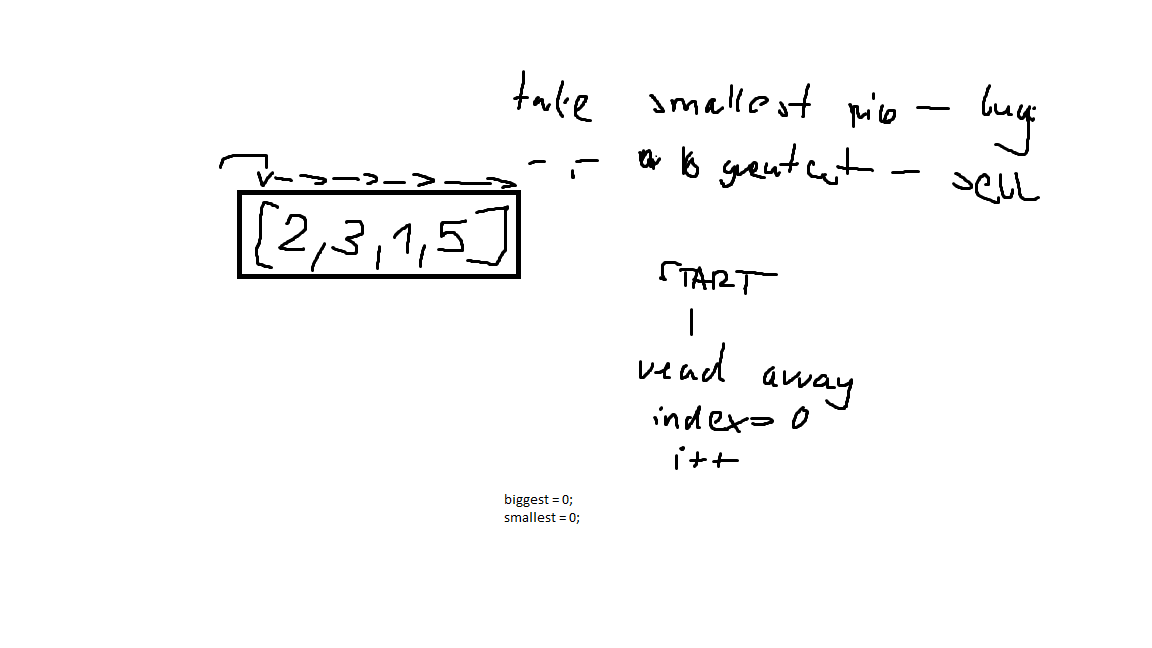 take smallest – buy
greatest – SELL
[2,3,1,5]
START
read array
index = 0
i++
biggest = 0;
smallest = 0;